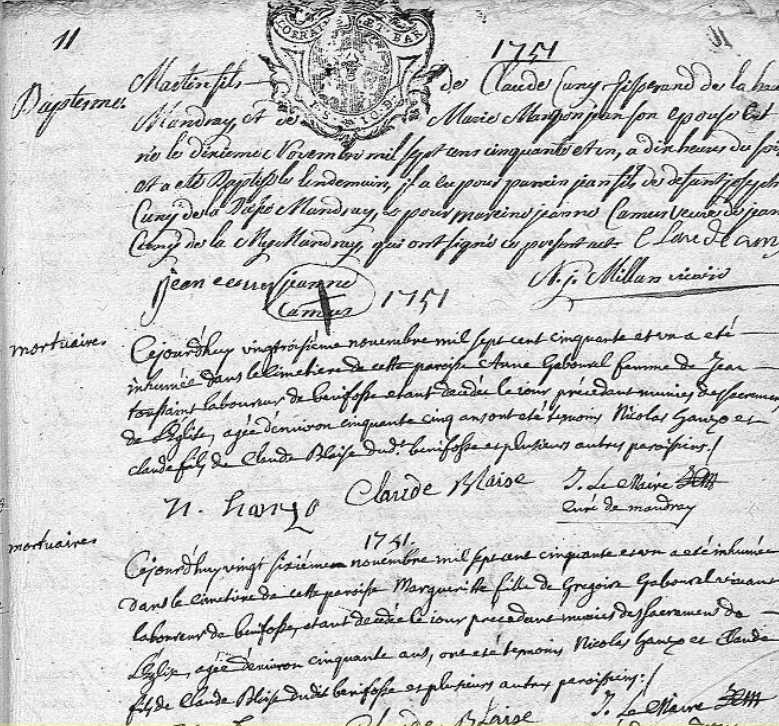 11
LORRAI ET BAR
1751
Baptesme
Martin fils de Claude Cuny tisserand de la hau
Mandray, et de Marie Mangonjean son epouse est
né le dixieme Novembre mil sept cens cinquante et un, a dix heures du soir
et a eté Baptisé le lendemain, il a eu pour parein jean fils de defunt joseph
Cuny de la Mandray, et pour mareine jeanne Camus veuve de jean
Cuny de la Mandray, qui ont signé ce present act. C Laude Cuny
jean cuny jeanne
Camus
N. j. Millan vicaire
1751
mortuaire
Cejourd'huy vingt troisiéme novembre mil sept cent cinquante et un a eté
inhumée dans le Cimetiere de cette paroisse Anne Gabourel femme de Jean
toussaint laboureur de benifosse etant decedée le jour précédant munies des sacremens
de L'Eglise, agée d'environ cinquante cinq ans ont eté temoins Nicolas hanzo et
claude fils de Claude Blaise dud.t benifosse et plusieurs autres paroissiens./
N. hanzo
Claude Blaise
J. Le Maire
curé de mandray
1751.
mortuaire
Cejourd'huy vingt sixiéme novembre mil sept cent cinquante et un a eté inhumée
dans le cimetiere de cette paroisse Margueritte fille de Gregoire Gabourel vivant
laboureur de benifosse, etant decedée le jour précédant munies des sacremens de
L'Eglise, agée d'environ cinquante ans, ont eté temoins Nicolas hanzo et Claude
fils de Claude Blaise dudit benifosse et plusieurs autres paroissiens:/
Claude Blaise
J. Le Maire